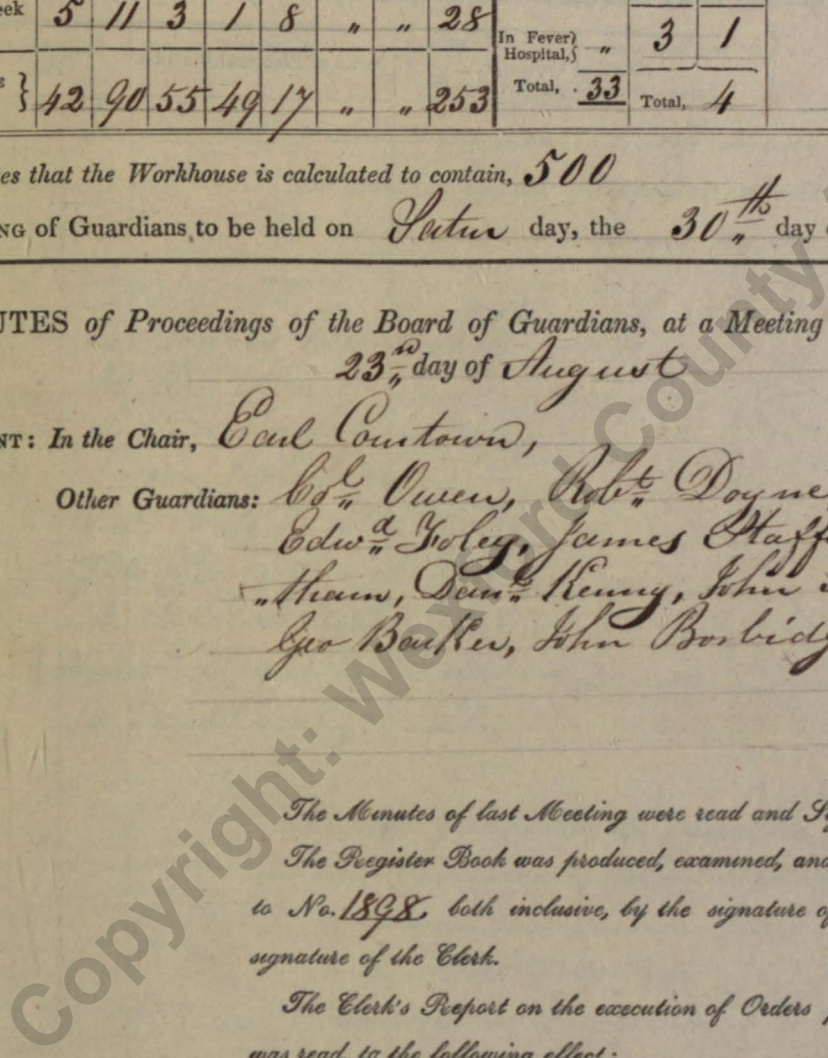 eek 5 11 3 1 8 " " 28
In Fever Hospital, " 3 1
} 42 90 55 49 17 " " 253 Total, . 33 Total, 4
es that the Workhouse is calculated to contain, 500
NG of Guardians to be held on Satur day, the 30th day
UTES of Proceedings of the Board of Guardians, at a Meeting
23rd day of August
NT: In the Chair, Earl Courtown,
Other Guardians: Col Owen, Robt Doyne
Edwd Foley, James Staff
"tham, Danl Kenny, John
Geo Barker, John Borbidg
The Minutes of last Meeting were read and Si
The Register Book was produced, examined, and
to No. 1898, both inclusive, by the signature of
signature of the Clerk.
The Clerk's Report on the execution of Orders
was read, to the following effect:
Copyright: Wexford County